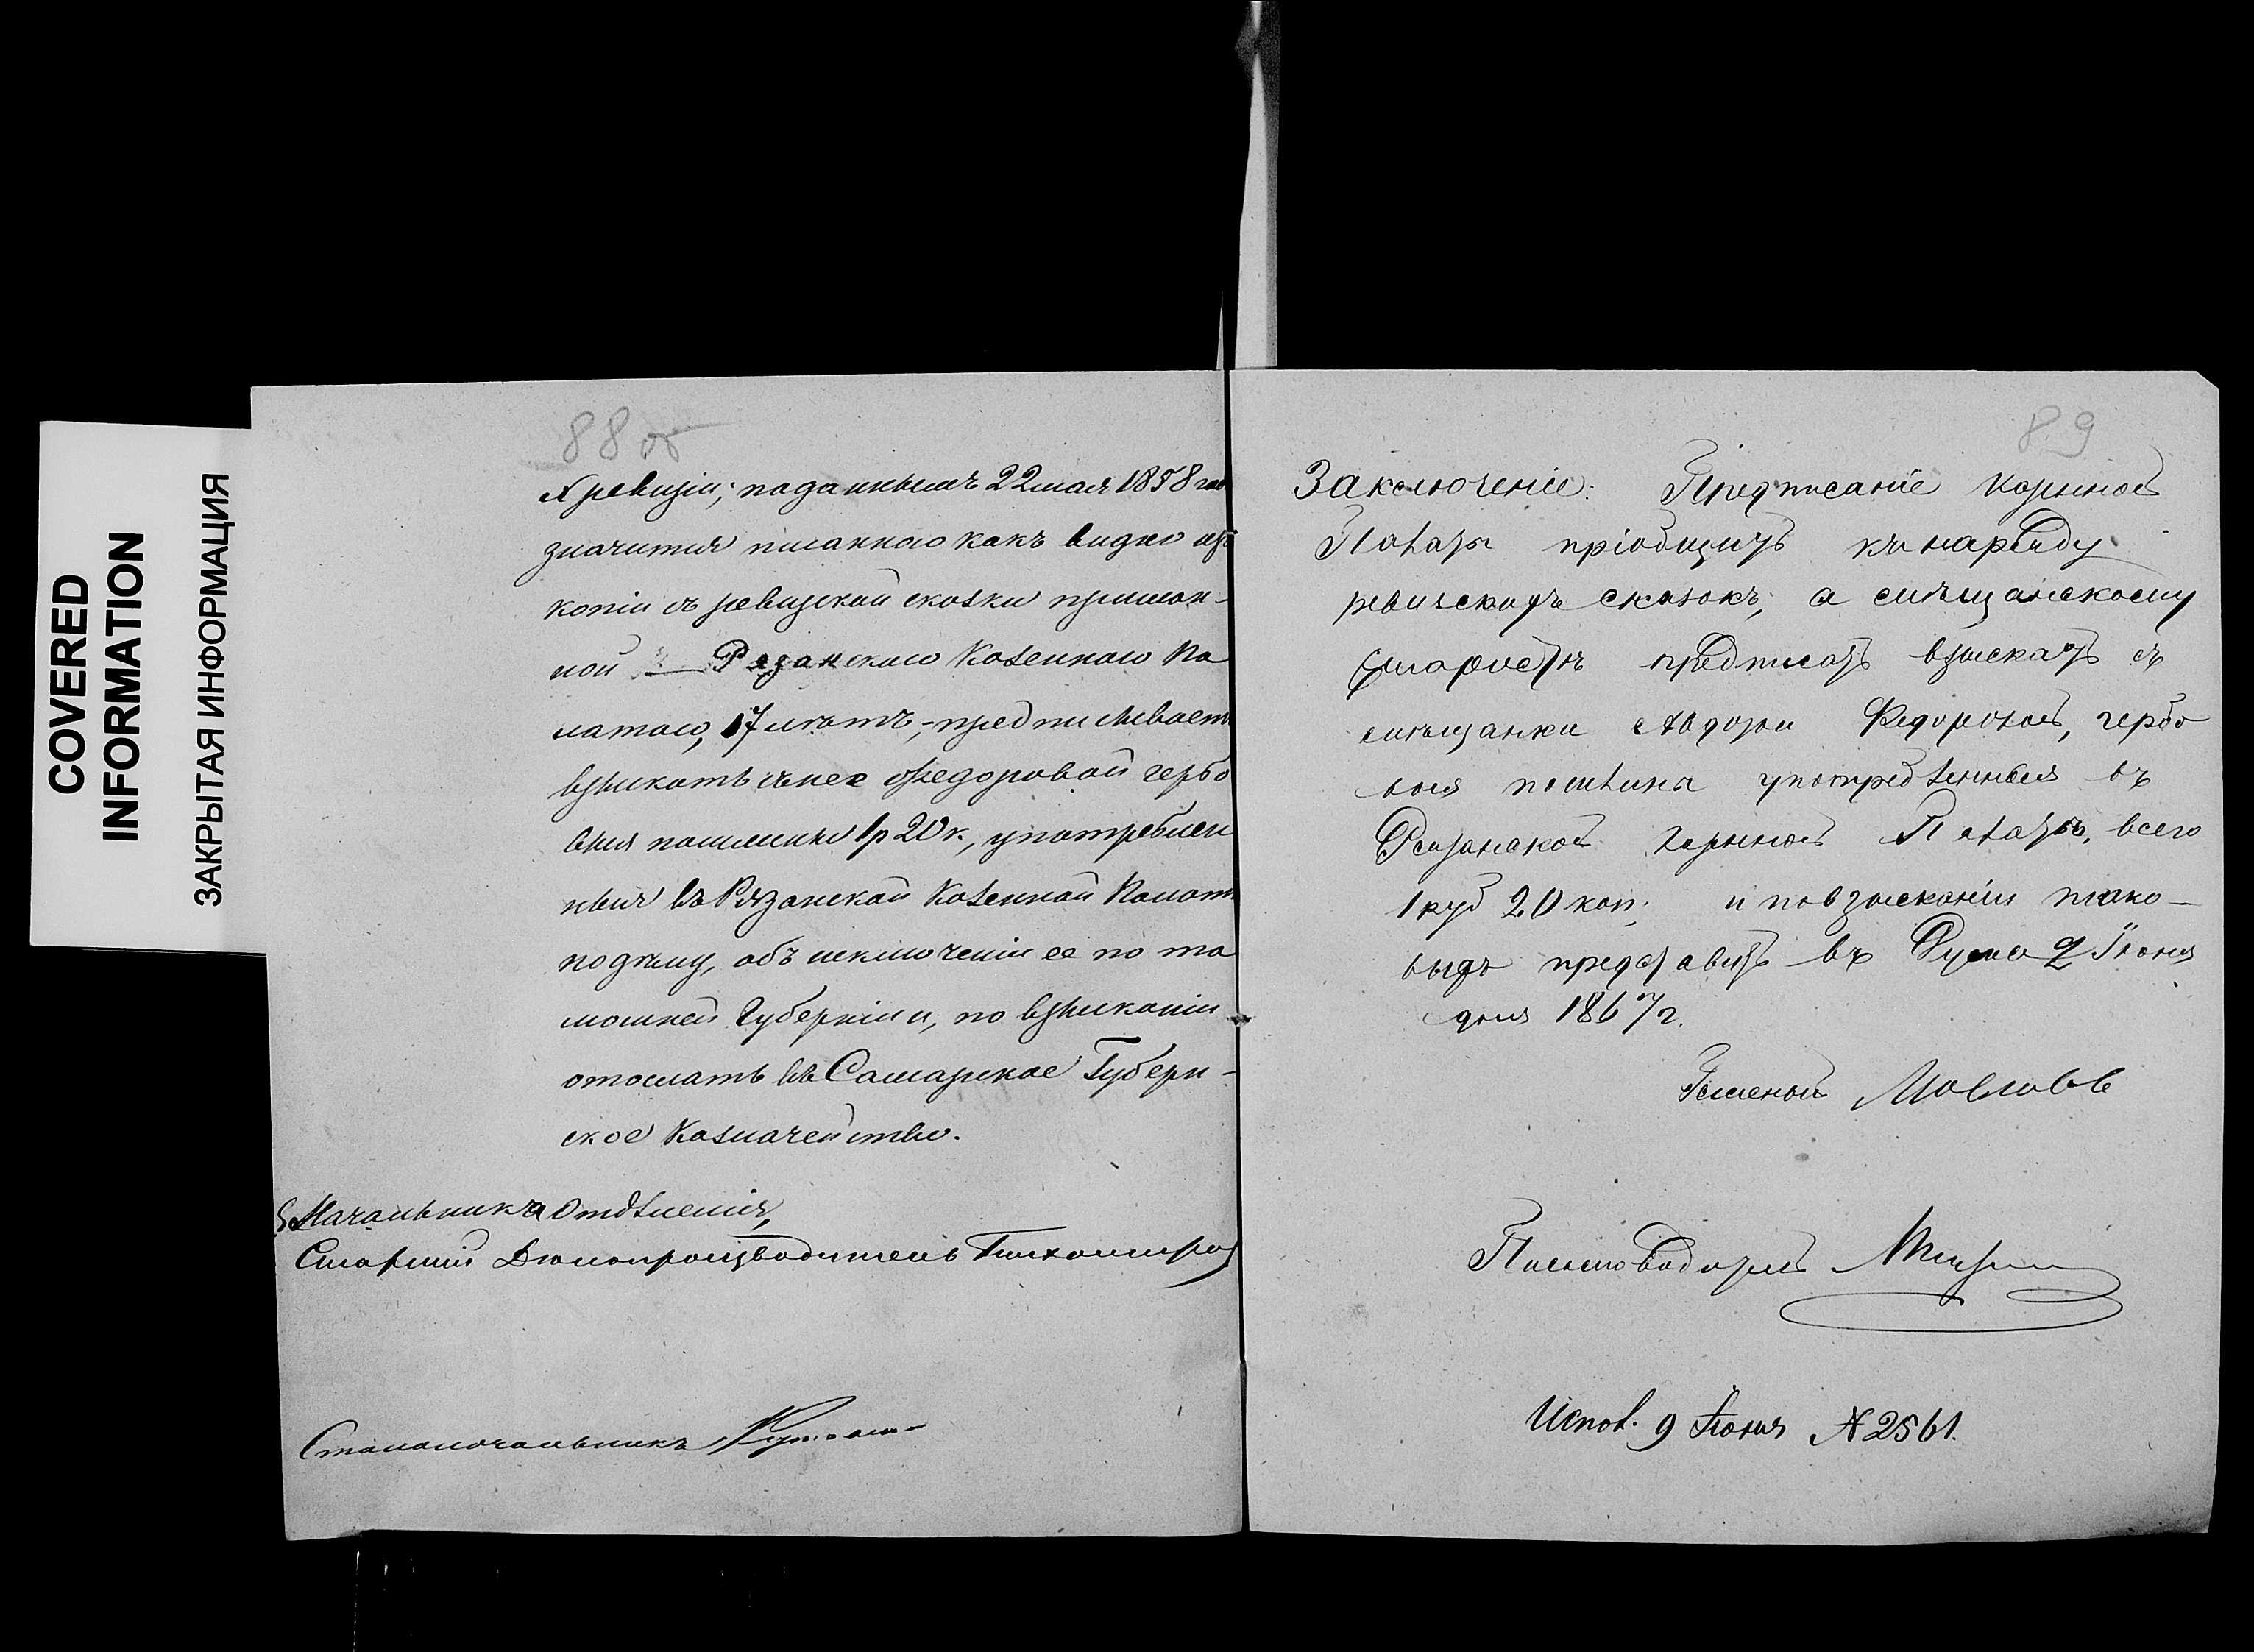 COVERED
INFORMATION
ЗАКРЫТАЯ ИНФОРМАЦИЯ
88 об
X ревизіи; поданнымъ 22 мая 1858 год
значится писанною какъ видно изъ
копіи съ ревизской сказки прислан-
ной Рязанскою Казенною Па
латою, 17 лѣтъ, - предписывает
взыскать съ нее Федоровой гербо
выя пошлины 1 р 20 к., употреблен
ныя въ Рязанской Казенной Палат
по дѣлу, объ исключеніи ее по та
мошней Губерніи и, по взысканіи
отослать въ Самарское Губерн-
ское Казначейство.
За Начальника Отдѣленія,
Старшій Дѣлопроизводитель Тихомиров
Столоначальникъ
89
Заключеніе: Предписаніе Казенной
Палаты пріобщить къ наряду
ревизскихъ сказокъ, а мѣщанскому
старостѣ предписать взыскать съ
мѣщанки Авдотьи Федоровой, гербо
выя пошлины употребленныя въ
Рязанской Казенной Палатѣ, всего
1 руб 20 коп; и по взысканіи тако-
выхъ представить въ Думу 9 Іюня
дня 1867 г.
Гласный
Письмоводитель
Испол. 9 Іюня № 2561.